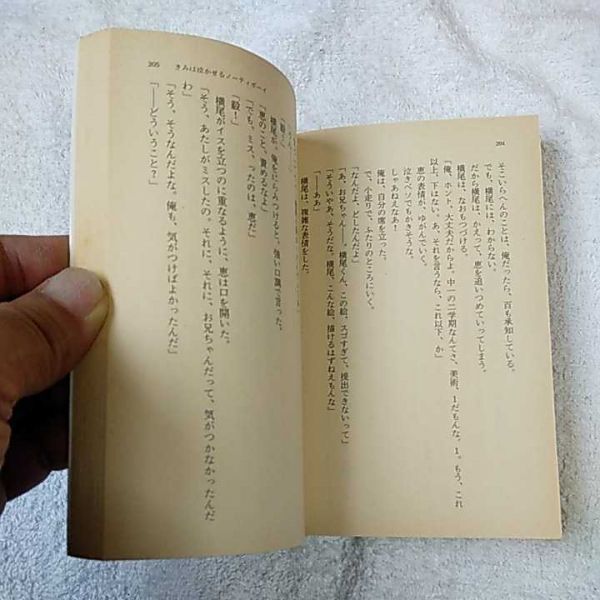 204
そこいらへんのことは、俺だったら、百も承知している。
でも、横尾には、わからない。
だから横尾は、かえって、恵を追いつめていってしまう。
横尾は、なおもつづける。
「俺、ホント、大丈夫だからよ、中一の二学期なんてさ、美術、1だもんな。1。もう、これ
以上、下はない。あ、それを言うなら、これ以下、か」
恵の表情が、ゆがんでいく。
泣きベソでもかきそうな。
しゃあねえなあ！
俺は、自分の席を立った。
で、小走りで、ふたりのところにいく。
「なんだよ、どしたんだよ」
「あ、お兄ちゃん――。横尾くん、この絵、スゴすぎて、提出できないって」
「そういやあ、そうだな。横尾、こんな絵、描けるはずねえもんな」
「――ああ」
横尾は、複雑な表情をした。
205 きみは泣かせるノーティボーイ
「毅！」
横尾が、俺をにらみつけると、強い口調で言った。
「恵のこと、責めんなよ」
「でも、ミス、ったのは、恵だ」
「毅！」
横尾がイスを立つのに重なるように、恵は口を開いた。
「そう、あたしがミスしたの。それに、それに、お兄ちゃんだって、気がつかなかったんだ
わ」
「そう、そうなんだよな。俺も、気がつけばよかったんだ」
「――どういうこと？」